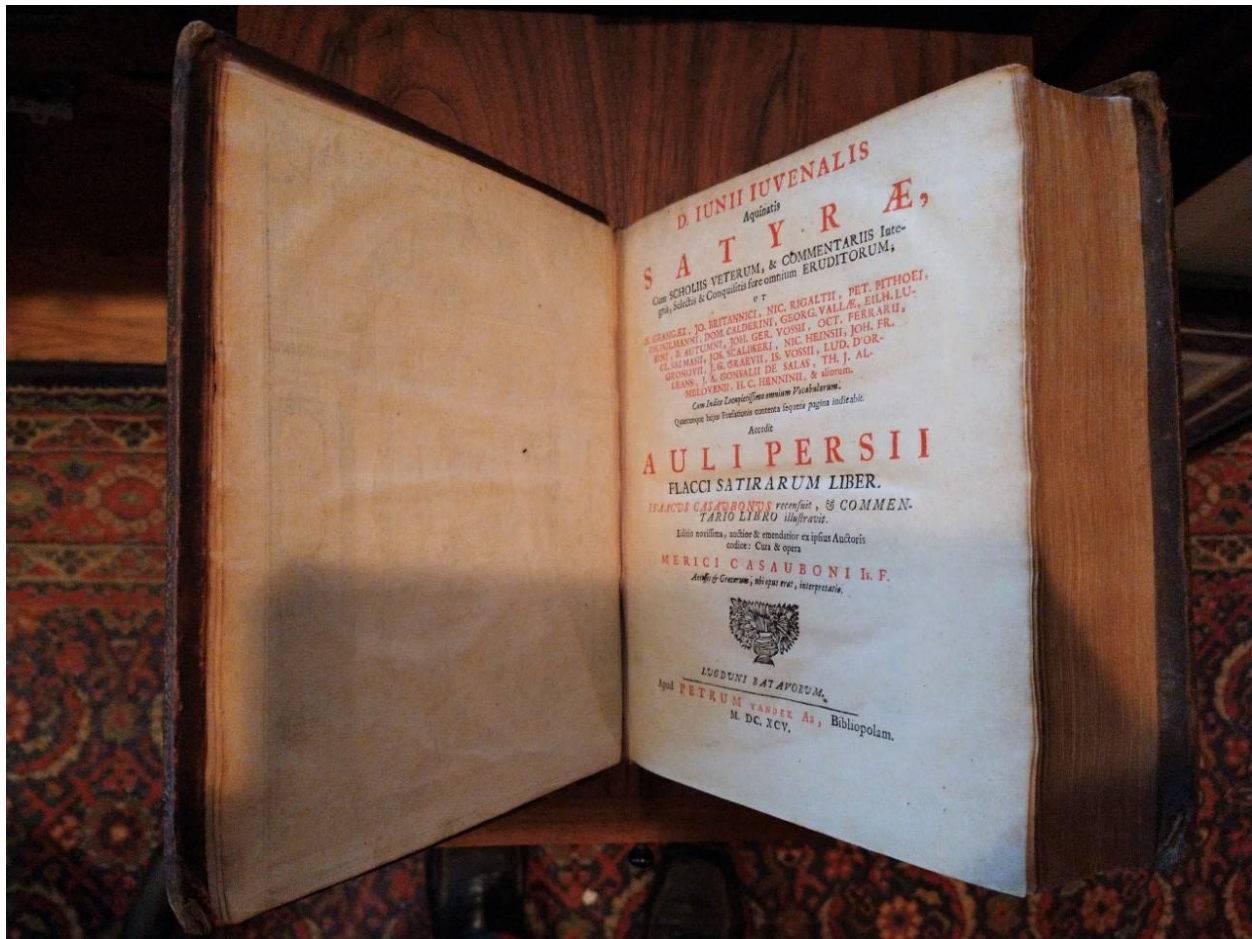 D. IUNII IUVENALIS
Aquinatis
SATYRÆ,
Cum SCHOLIIS VETERUM, & COMMENTARIIS Inte-
gris, Selectis & Conquisitis fere omnium ERUDITORUM;
UT
GRANGÆI, JO. BRITANNICI, NIC. RIGALTII, PET. PITHOEI,
PULMANNI, DOM. CALDERINI, GEORG. VALLÆ, EILH. LU-
BINI, B. AUTUMNI, JOH. GER. VOSSII, OCT. FERRARII,
CL. SALMASII, JOS. SCALIGERI, NIC. HEINSII, JOH. FR.
GRONOVII, J. G. GRAEVII, IS. VOSSII, LUD. D'OR-
LEANS, J. A. GONSALII DE SALAS, TH. J. AL-
MELOVENII, H. C. HENNINII, & aliorum.
Cum Indice Locupletissimo omnium Vocabulorum:
Quantumque hujus Præfationis contenta sequens pagina indicabit.
Accedit
AULI PERSII
FLACCI SATIRARUM LIBER.
ISAACUS CASAUBONUS recensuit, & COMMEN-
TARIO LIBRO illustravit.
Editio novissima, auctior & emendatior ex ipsius Auctoris
codice: Cura & opera
MERICI CASAUBONI Is. F.
Græcorum, ubi opus erat, interpretatio.
LUGDUNI BATAVORUM.
Apud PETRUM VANDER Aa, Bibliopolam.
M. DC. XCV.